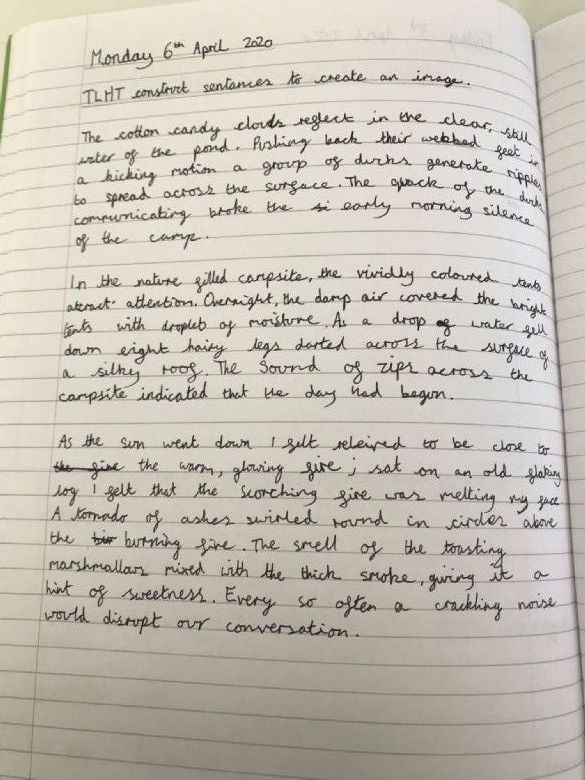 Monday 6th April 2020
TLHT construct sentances to create an image.
The cotton candy clouds reflect in the clear, still
water of the pond. Pushing back their webbad feet in
a kicking motion a group of ducks generate ripples
to spread across the surface. The quack of the ducks
communicating broke the si early morning silence
of the camp.
In the nature filled campsite, the vividly coloured tents
attract attention. Overnight, the damp air covered the bright
tents with droplets of moisture. As a drop of water fell
down eight hairy legs darted across the surface of
a silky roof. The Sound of zips across the
campsite indicated that the day had begun.
As the sun went down I felt releived to be close to
the fire the warm, glowing fire; sat on an old flaking
log I felt that the scorching fire was melting my face
A tornado of ashes swirled round in circles above
the burning fire. The smell of the toasting
marshmallows mixed with the thick smoke, giving it a
hint of sweetness. Every so often a crackling noise
would disrupt our conversation.